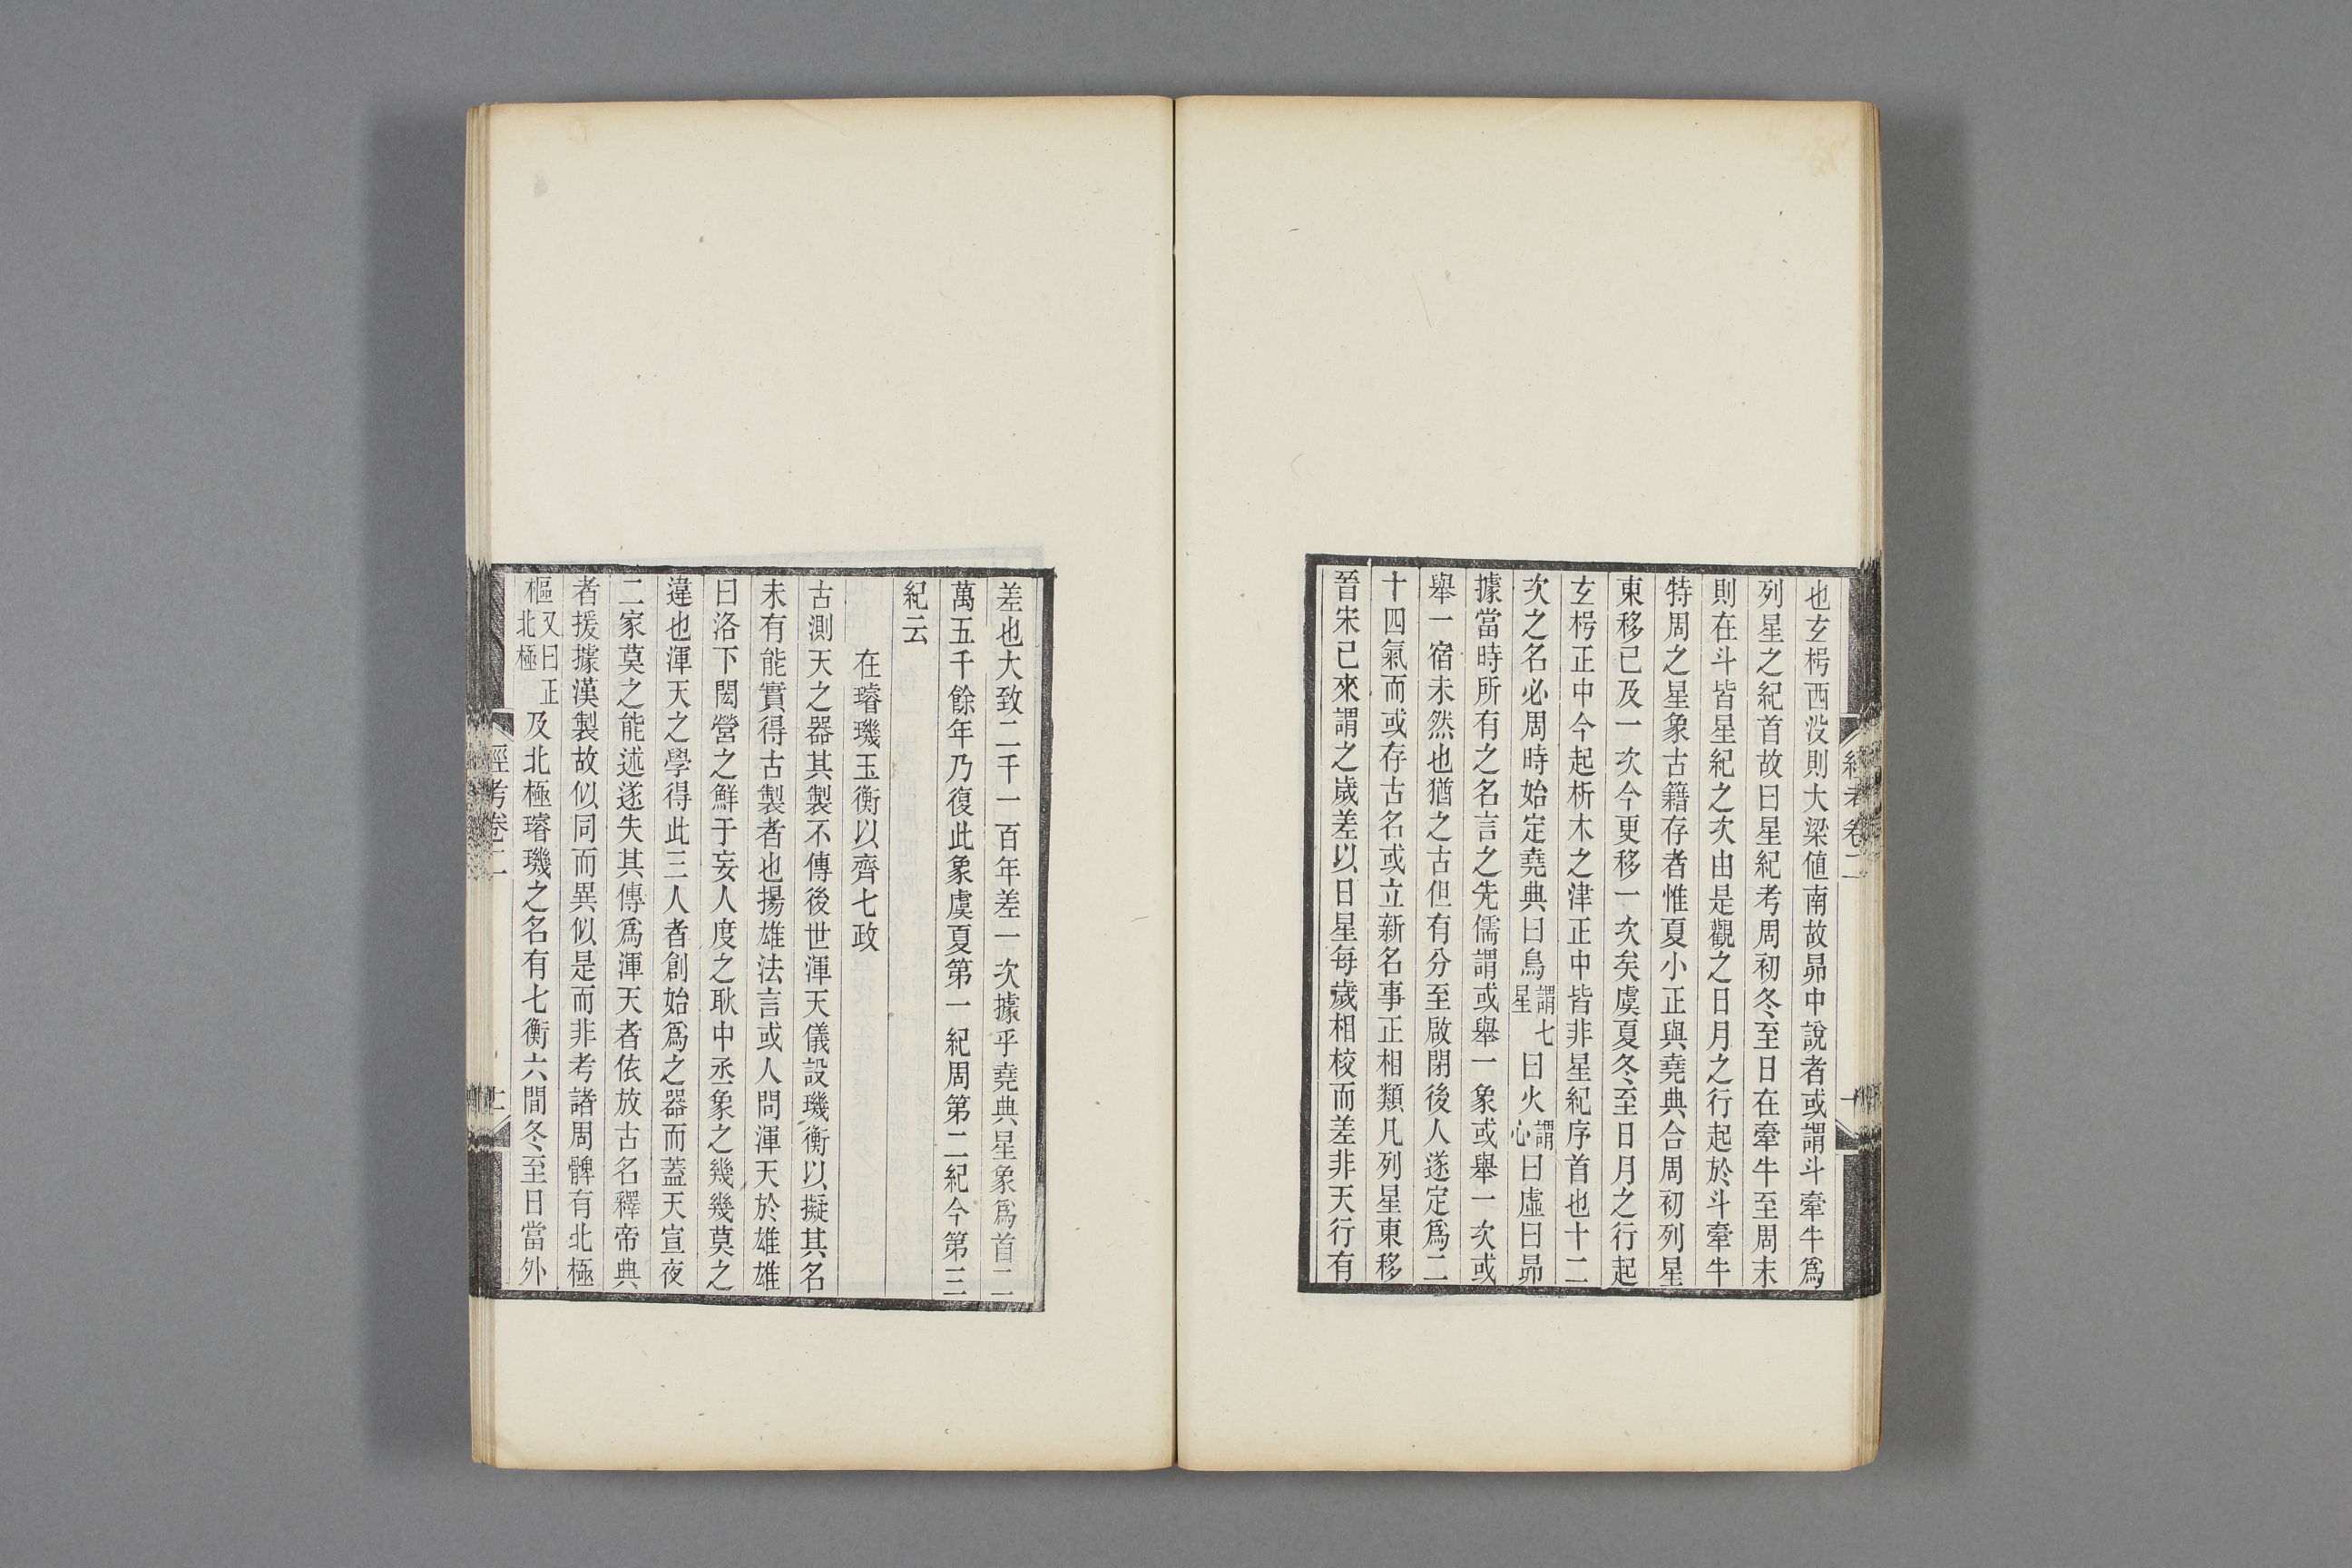 也玄枵西没則大梁值南故昴中說者或謂斗牽牛爲
列星之紀首故曰星紀考周初冬至日在牽牛至周末
則在斗皆星紀之次由是觀之日月之行起於斗牽牛
特周之星象古籍存者惟夏小正與堯典合周初列星
東移已及一次今更移一次矣虞夏冬至日月之行起
玄枵正中今起析木之津正中皆非星紀序首也十二
次之名必周時始定堯典曰鳥謂七星曰火謂心曰虛曰昴
據當時所有之名言之先儒謂或舉一象或舉一次或
舉一宿未然也猶之古但有分至啟閉後人遂定爲二
十四氣而或存古名或立新名事正相類凡列星東移
晉宋已來謂之歲差以日星每歲相校而差非天行有
經考卷二
十
差也大致二千一百年差一次據乎堯典星象爲首二
萬五千餘年乃復此象虞夏第一紀周第二紀今第三
紀云
在璿璣玉衡以齊七政
古測天之器其製不傳後世渾天儀設璣衡以擬其名
未有能實得古製者也揚雄法言或人問渾天於雄雄
曰洛下閎營之鮮于妄人度之耿中丞象之幾幾莫之
違也渾天之學得此三人者創始爲之器而蓋天宣夜
二家莫之能述遂失其傳爲渾天者依放古名釋帝典
者援據漢製故似同而異似是而非考諸周髀有北極
樞又曰正北極及北極璿璣之名有七衡六間冬至日當外
經考卷二